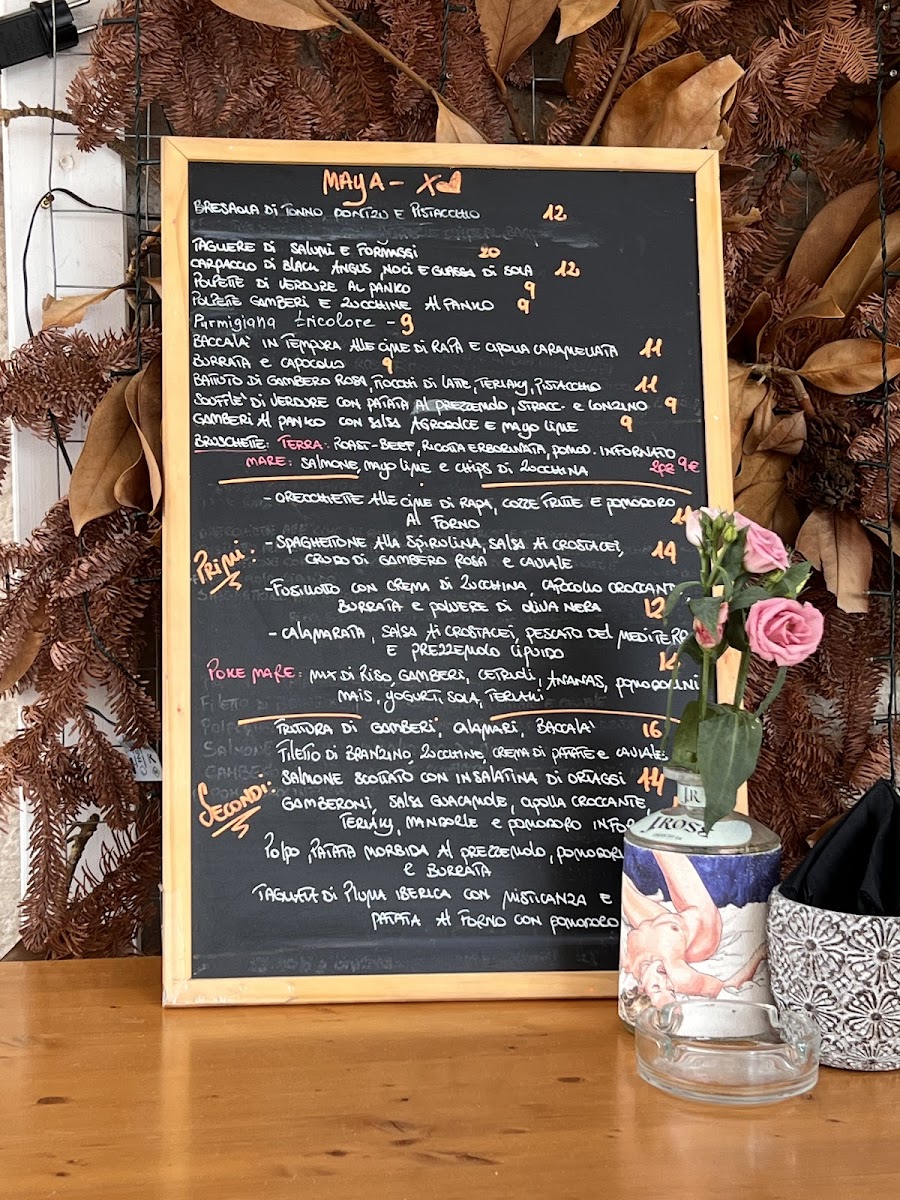 MAYA - X
BRESAOLA DI TONNO, PONTZU E PISTACCHIO 12
TAGLIERE DI SALUMI E FORMAGGI 20
CARPACCIO DI BLACK ANGUS, NOCI E GLASSA DI SOIA 12
POLPETTE DI VERDURE AL PANKO 9
POLPETTE GAMBERI E ZUCCHINE AL PANKO 9
Parmigiana tricolore - 9
BACCALA' IN TEMPURA ALLE CIME DI RAPA E CIPOLLA CARAMELLATA 11
BURRATA E CAPOCOLLO 9
BATTUTO DI GAMBERO ROSA, FIOCCHI DI LATTE, TERIAKY, PISTACCHIO 11
SOUFFLE' DI VERDURE CON PATATA AL PREZZEMOLO, STRACC. E LONZINO 9
GAMBERI AL PANKO CON SALSA AGRODOLCE E MAYO LIME 9
BRUSCHETTE: TERRA: ROAST-BEEF, RICOTTA ERBORINATA, POMOD. INFORNATO
MARE: SALMONE, MAYO LIME E CHIPS DI ZUCCHINA 2PZ 9€
- ORECCHIETTE ALLE CIME DI RAPA, COZZE FRITTE E POMODORO
AL FORNO
PRIMI: - SPAGHETTONE ALLA SPIRULINA, SALSA AI CROSTACEI, 14
CRUDO DI GAMBERO ROSA E CAVIALE
- FUSILLOTTO CON CREMA DI ZUCCHINA, CAPOCOLLO CROCCANT
BURRATA E POLVERE DI OLIVA NERA 12
- CALAMARATA, SALSA AI CROSTACEI, PESCATO DEL MEDITERR
E PREZZEMOLO LIQUIDO
POKE MARE: MIX DI RISO, GAMBERI, CETRIOLI, ANANAS, POMODORINI
MAIS, YOGURT, SOIA, TERIAKI
FRITTURA DI GAMBERI, CALAMARI, BACCALA' 16
FILETTO DI BRANZINO, ZUCCHINE, CREMA DI PATATE E CAVIALE
SECONDI: SALMONE SCOTTATO CON INSALATINA DI ORTAGGI 14
GAMBERONI, SALSA GUACAMOLE, CIPOLLA CROCCANTE,
TERIAKY, MANDORLE E POMODORO INFOR
POLPO, PATATA MORBIDA AL PREZZEMOLO, POMODORI
E BURRATA
TAGLIATA DI PLUMA IBERICA CON MISTICANZA E
PATATA AL FORNO CON POMODORO
JR
JROSE